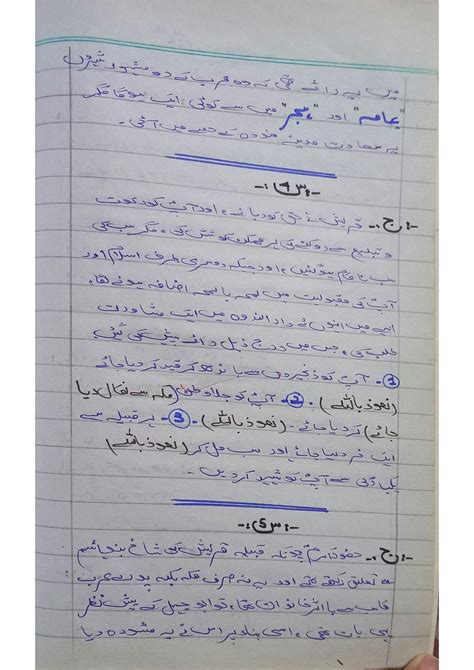 میں یہ رائے تھی کہ وہ عرب کے دو مشہور شہروں
"یمامہ" اور "ہجر" میں سے کوئی ایک ہوگا مگر
یہ سعادت مدینہ منورہ کے حصے میں آئی۔
-: س :-
ج۔ قریش نے حق کو دبانے اور آپؐ کو دعوت
و تبلیغ سے روکنے کی ہر ممکن کوشش کی، مگر سب کی
سب ناکام ہوگئیں، اور جبکہ دوسری طرف اسلام اور
آپؐ کی مقبولیت میں لمحہ بالمحہ اضافہ ہونے لگا،
ایسے میں انہوں نے دارالندوہ میں ایک مشاورت
طلب کی، جس میں درج ذیل رائے پیش کی گئیں
1۔ آپؐ کو زنجیروں سے باندھ کر قید کر دیا جائے
(نعوذ باللہ)۔ 2۔ آپؐ کو جلاوطن (مکہ سے نکال دیا
جائے) کر دیا جائے۔ (نعوذ باللہ)۔ 3۔ ہر قبیلہ سے
ایک فرد لیا جائے اور سب مل کر (نعوذ باللہ)
یک بارگی سے آپؐ کو شہید کر دیں۔
-: س :-
ج۔ حضور اکرمؐ چونکہ قبیلہ قریش کی شاخ بنو ہاشم
سے تعلق رکھتے تھے اور یہ نہ صرف مکہ بلکہ پورے عرب
کا سب سے بااثر خاندان تھا، تو ابو جہل کے پیش نظر
یہی بات تھی، اسی بناء پر اس نے یہ مشورہ دیا